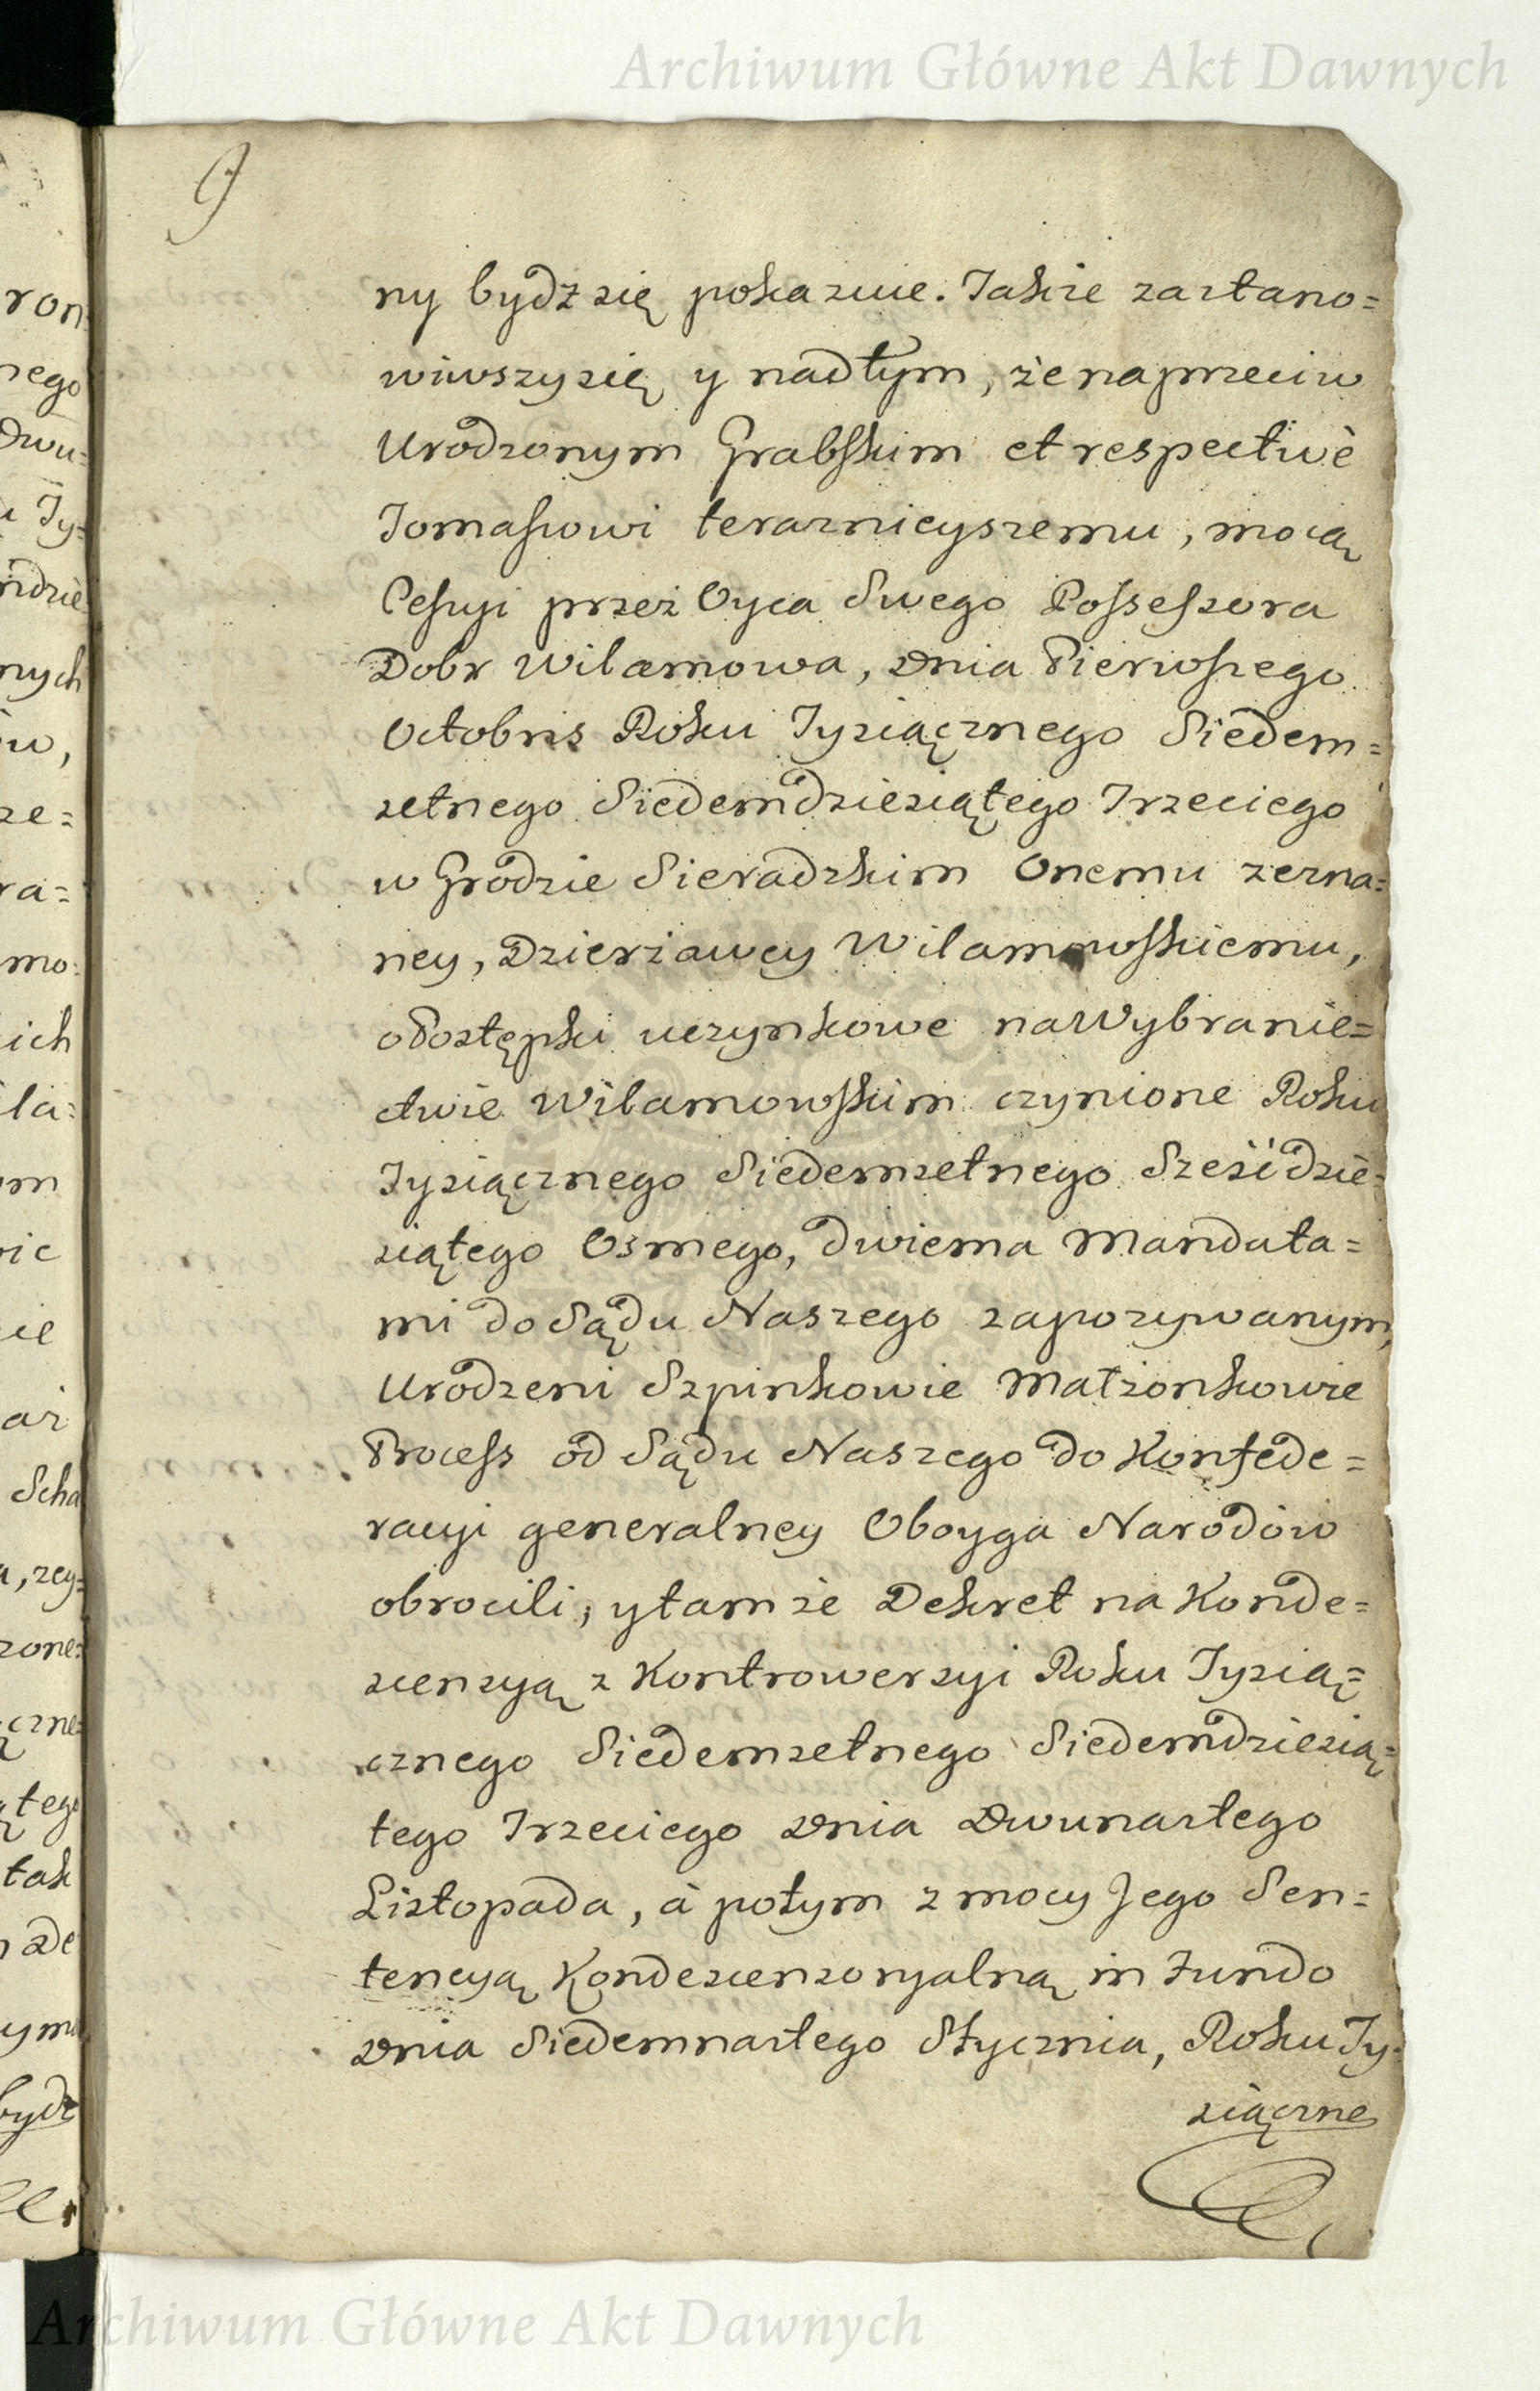 Archiwum Główne Akt Dawnych
9
ny bydz się pokazuie. Także zastano=
wiwszy się y nad tym, że naprzeciw
Urodzonym Grabskim et respectivè
Tomaszowi teraznieyszemu, mocą
Cessyi przez Oyca Swego Possessora
Dobr Wilamowa, Dnia Pierwszego
Octobris Roku Tysiącznego Siedem=
setnego Siedemdziesiątego Trzeciego
w Grodzie Sieradzkim Onemu zezna=
ney, Dzierżawcy Wilamowskiemu,
o Postępki uczynkowe na Wybranie=
ctwie Wilamowskim czynione Roku
Tysiącznego Siedemsetnego Sześćdzie=
siątego Osmego, dwiema Mandata=
mi do Sądu Naszego zapozywanym,
Urodzeni Szpinkowie Małżonkowie
Process od Sądu Naszego do Konfede=
racyi generalney Oboyga Narodow
obrocili, y tamże Dekret na Konde=
scensyą z Kontrowersyi Roku Tysią=
cznego Siedemsetnego Siedemdziesią=
tego Trzeciego Dnia Dwunastego
Listopada, à potym z mocy Jego Sen=
tencyą Kondescensoryalną in Fundo
Dnia Siedemnastego Stycznia, Roku Ty=
siączne
ron
nego
Dwu=
u Ty=
ndzie
nych
ow,
ze=
ra=
mo=
ich
ila=
ym
nie
ie
az
Scha
a, zey=
zone=
ączne=
ątego
tak
n de
ym
bydz
Archiwum Główne Akt Dawnych